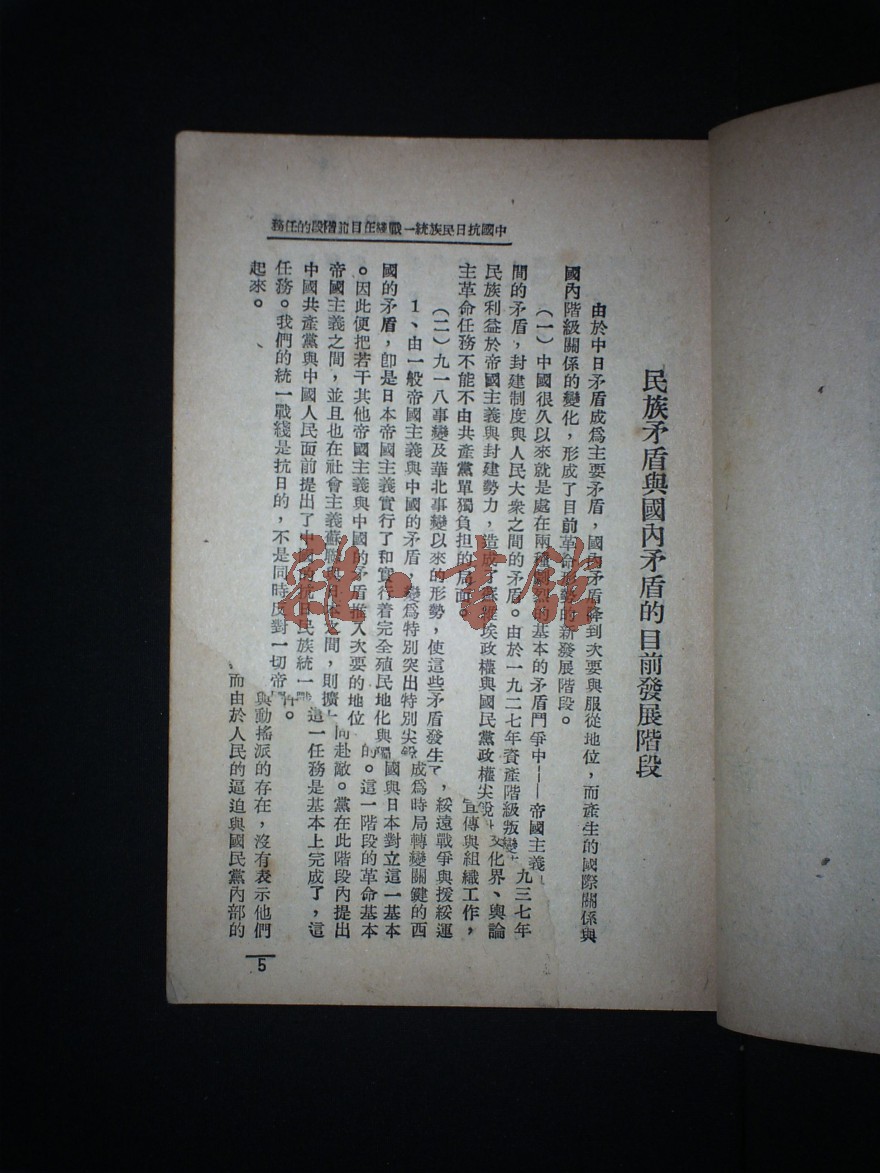 中國抗日民族統一戰綫在目前階段的任務
民族矛盾與國內矛盾的目前發展階段
由於中日矛盾成爲主要矛盾，國內矛盾降到次要與服從地位，而產生的國際關係與
國內階級關係的變化，形成了目前革命形勢的新發展階段。
（一）中國很久以來就是處在兩種劇烈的基本的矛盾鬥爭中——帝國主義
間的矛盾，封建制度與人民大衆之間的矛盾。由於一九二七年資產階級叛變 九三七年
民族利益於帝國主義與封建勢力，造成了蘇維埃政權與國民黨政權尖銳 文化界、輿論
主革命任務不能不由共產黨單獨負担的局面。 宣傳與組織工作，
（二）九一八事變及華北事變以來的形勢，使這些矛盾發生了 ，綏遠戰爭與援綏運
1、由一般帝國主義與中國的矛盾 變爲特別突出特別尖銳 成爲時局轉變關鍵的西
國的矛盾，卽是日本帝國主義實行了和實行着完全殖民地化 國與日本對立這一基本
。因此便把若干其他帝國主義與中國的矛盾推入次要的地位 的。這一階段的革命基本
帝國主義之間，並且也在社會主義蘇聯與日本之間，則擴 同赴敵。黨在此階段內提出
中國共產黨與中國人民面前提出了中國的抗日民族統一戰 這一任務是基本上完成了，這
任務。我們的統一戰綫是抗日的，不是同時反對一切帝 件。
起來。 與動搖派的存在，沒有表示他們
而由於人民的逼迫與國民黨內部的
5
雜·書館